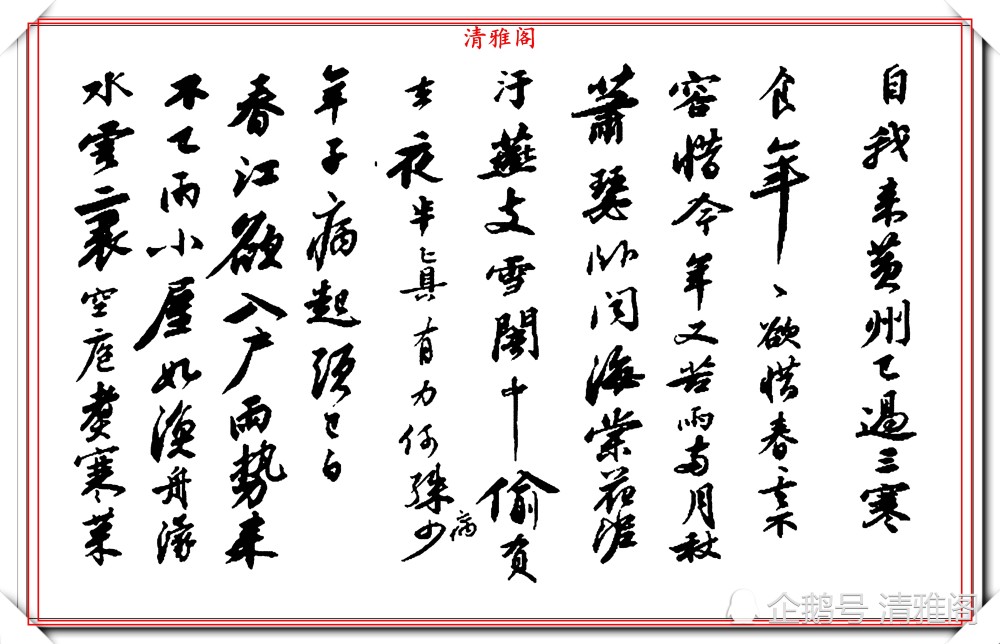 清雅阁
自我来黄州已過三寒
食年〻欲惜春〻去不
容惜今年又苦雨兩月秋
蕭瑟卧聞海棠花泥
汙燕支雪闇中偷負
去夜半真有力何殊少
病
年子病起頭已白
春江欲入户雨勢来
不已雨小屋如漁舟濛
水雲裏空庖煮寒菜
企鹅号 清雅阁